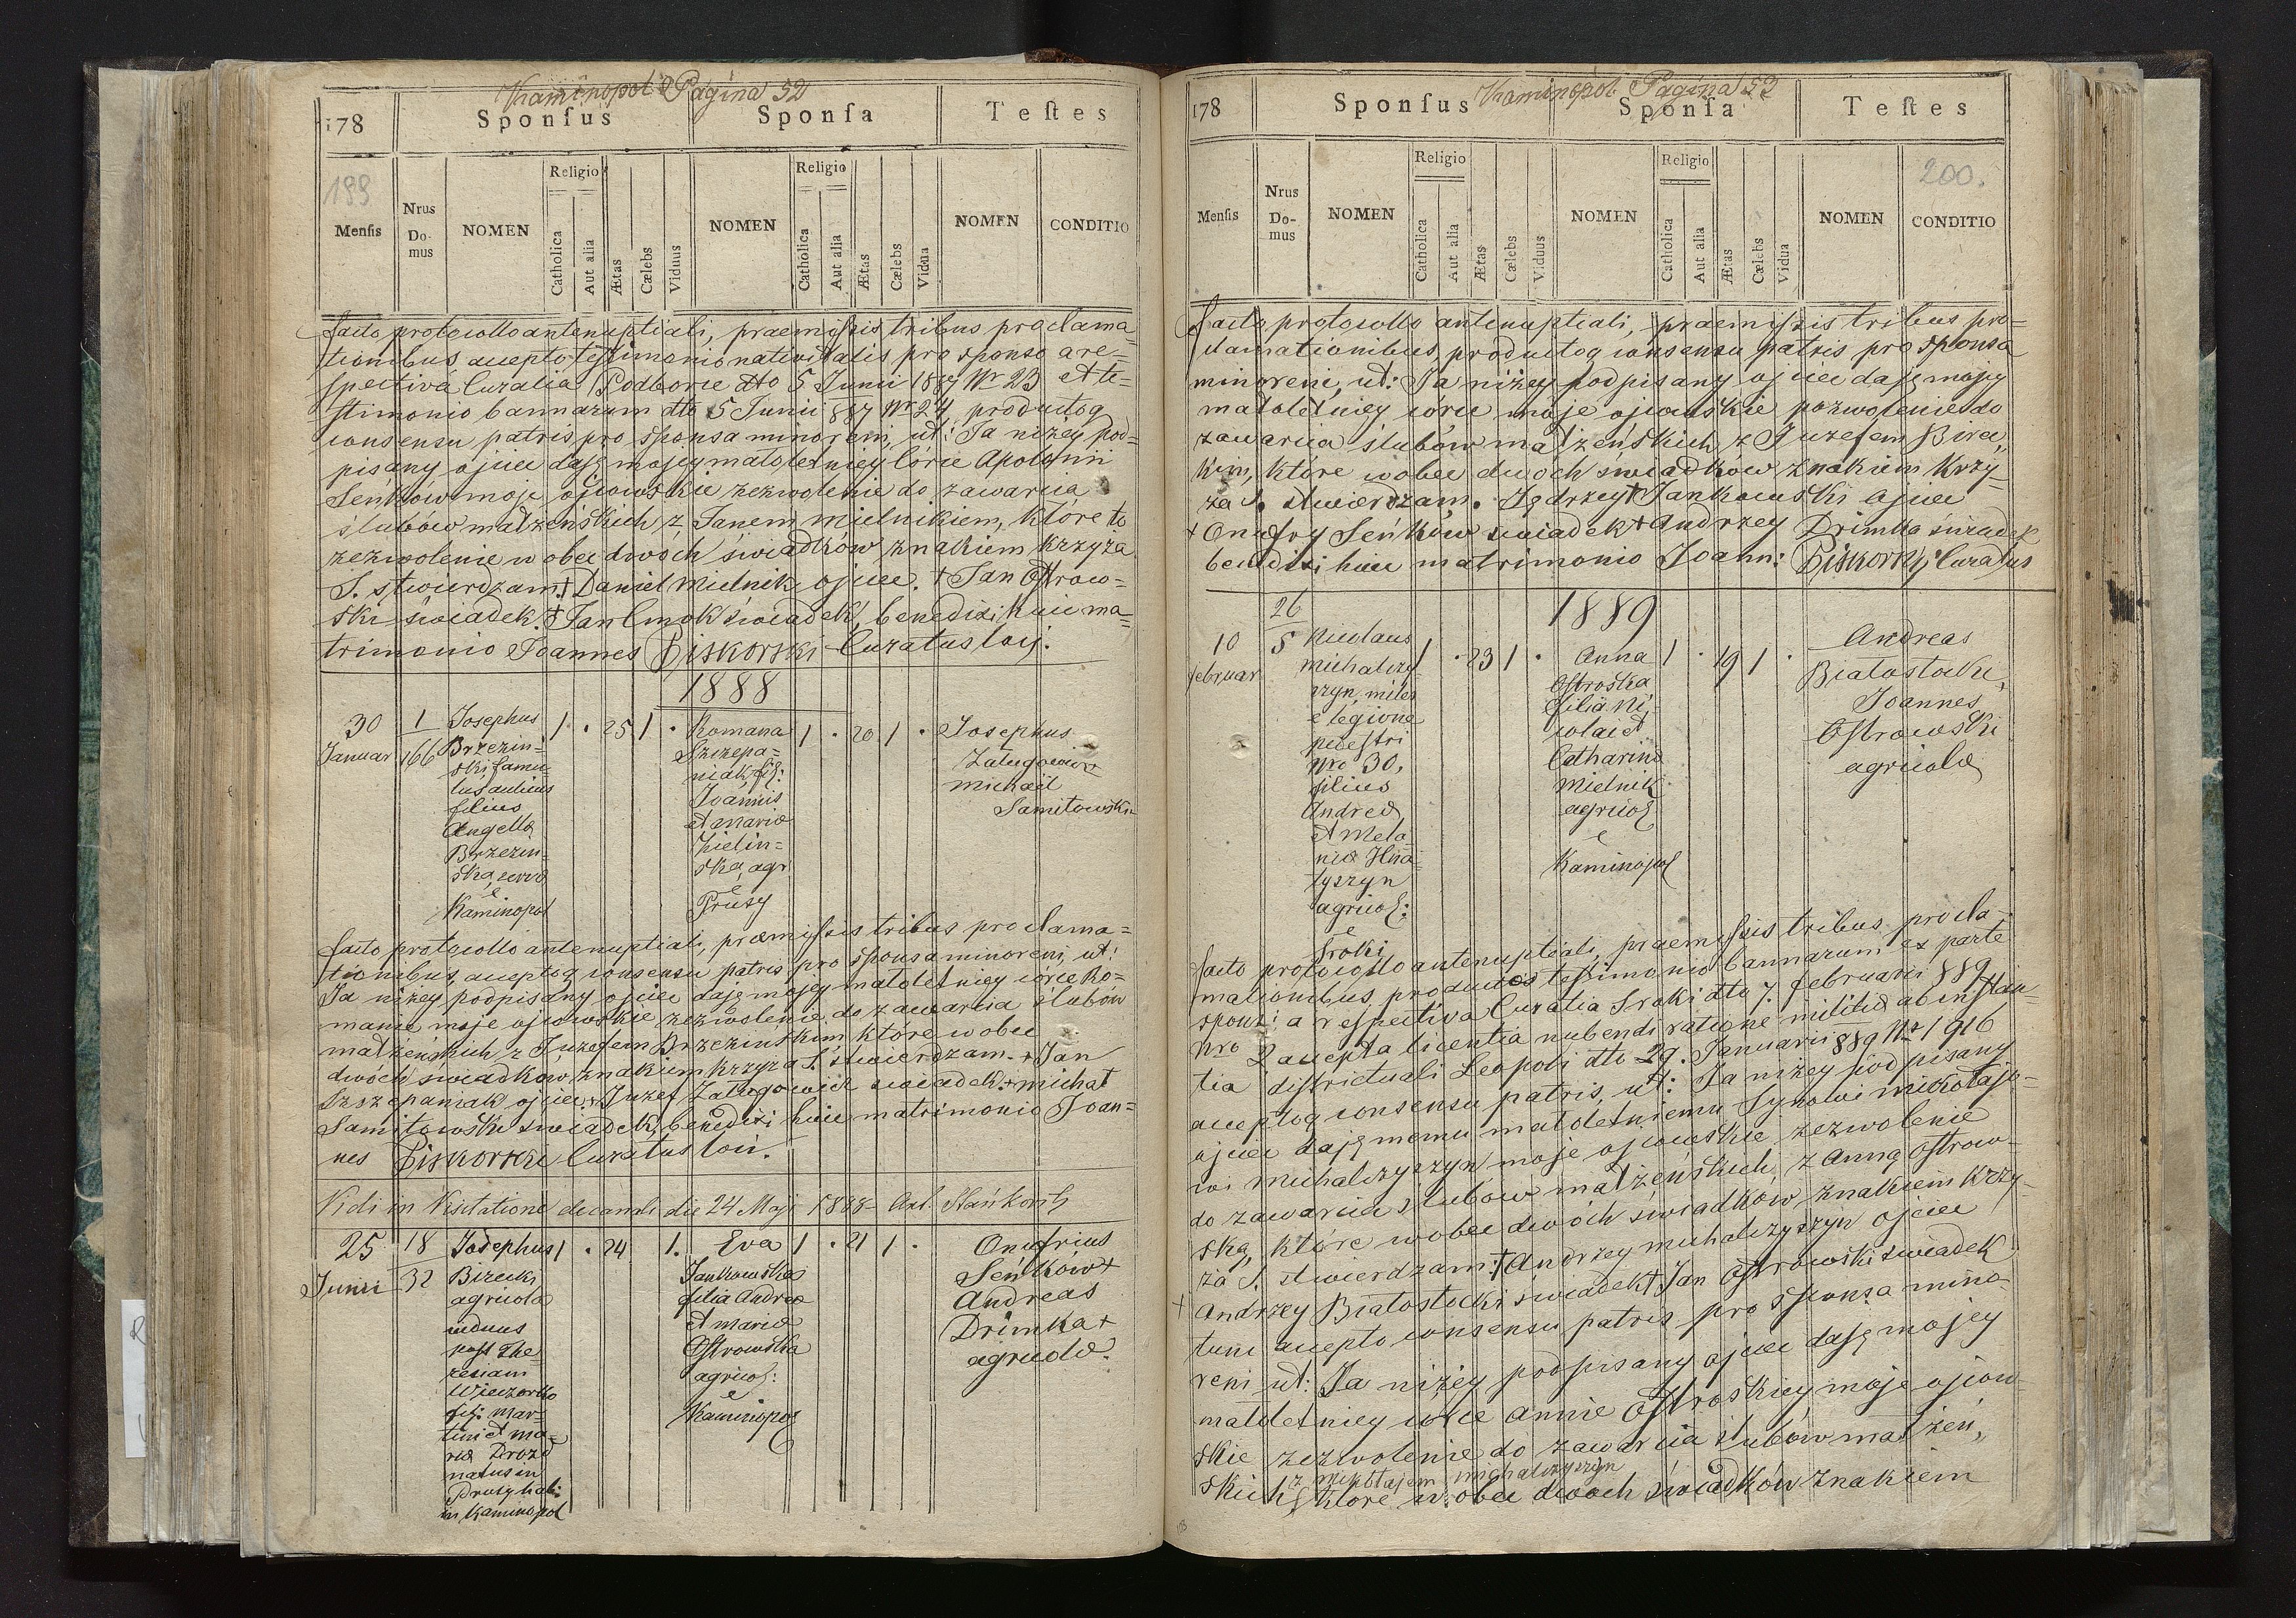 Kaminopol Pagina 52
178
Sponsus Sponsa Testes
199
Mensis
Nrus Do-mus
NOMEN
Religio
Catholica
Aut alia
Ætas
Cælebs
Viduus
NOMEN
Religio
Catholica
Aut alia
Ætas
Cælebs
Vidua
NOMEN
CONDITIO
facto protocollo antenuptiali, praemissis tribus proclama=
tionibus, accepto testimonio nativitatis pro sponso a re=
spectiva Curatia Podborce dto 5 Junii 1887 Nr 23 et te=
stimonio bannarum dto 5 Junii 887 Nr 24, productoq
consensu patris pro sponsa minoreni, ut: Ja niżey pod=
pisany ojciec daję mojey małoletniey Córce Apolonii
Seńków moje ojcowskie zezwolenie do zawarcia
ślubów małżeńskich z Janem Mielnikiem, które to
zezwolenie w obec dwóch świadków znakiem krzyża
S. stwierdzam. † Daniel Mielnik ojciec. † Jan Ostrow=
ski świadek. † Jan Cmok świadek, benedixi huic ma=
trimonio Joannes Piskorski Curatus loci.
1888
30
Januar
1
166
Josephus
Brzezin=
ski famu
lus aulicus
filius
Angella
Brzezin=
ska, serva
e
Kaminopol
1 · 25 1 ·
Romana
Szczepa=
niak, fil:
Joannis
et Maria
Zielin=
ska, agr
e
Prusy
1 · 20 1 ·
Josephus
Załugowicz
Michael
Samitowski
facto protocollo antenuptiali, præmissis tribus proclama=
tionibus, acceptoq consensu patris pro sponsa minoreni, ut:
Ja niżey podpisany ojciec daję mojey małoletniey córce Ro=
manie moje ojcowskie zezwolenie do zawarcia ślubów
małżeńskich z Juzefem Brzezinskim które w obec
dwóch świadków znakiem krzyża S. stwierdzam. † Jan
Szczepaniak ojciec. † Juzef Załugowicz świadek. † Michał
Samitowski świadek, benedixi huic matrimonio Joan=
nes Piskorski Curatus loci.
Vidi in Visitatione decanali die 24 Maji 1888
25
Junii
18
32
Josephus
Birecki
agricola
viduus
post The=
resiam
Wieczorko
fil: Mar=
tini et Ma=
ria Drozd
natus in
Prusy hab:
in Kaminopol
1 · 24 1.
Eva
Jankowska
filia Andrea
et Maria
Ostrowska
agricol:
e
Kaminopol
1 · 21 1 ·
Onufrius
Seńków +
Andreas
Drimka +
agricolæ.
Kaminopol Pagina 53
178
Sponsus Sponsa Testes
200.
Mensis
Nrus Do-mus
NOMEN
Religio
Catholica
Aut alia
Ætas
Cælebs
Viduus
NOMEN
Religio
Catholica
Aut alia
Ætas
Cælebs
Vidua
NOMEN
CONDITIO
facto protocollo antenuptiali, praemissis tribus pro=
clamationibus, productoq consensu patris pro sponsa
minoreni, ut: Ja niżey podpisany ojciec daję mojey
małoletniey córce moje ojcowskie pozwolenie do
zawarcia ślubów małżeńskich z Juzefem Birec„
kim, które w obec dwóch świadków znakiem krzy=
ża S. stwierdzam. Jędrzey † Jankowski ojciec
† Onufry Seńków świadek † Andrzey Drimka świadek
benedixi huic matrimonio Joann: Piskorski Curatus
1889
10
februar
26
5
Nicolaus
Michalczy
szyn, miles
e legione
pedestri
Nro 30,
filius
Andrea
et Mela
nia Hna
tyszyn
agricol:
e
Sroki
1 · 23 1 ·
Anna
Ostroska
filia Ni=
colai et
Catharina
Mielnik
agricol
e
Kaminopol
1 · 19 1 ·
Andreas
Białostocki,
Joannes
Ostrowski
agricolæ
facto protocollo antenuptiali, praemyssis tribus procla=
mationibus, productos testimonio bannarum ex parte
sponsi a respectiva Curatia Sroki dto 7. februarii 889
Nro 2 accepta licentia nubendi ratione militiæ ab instan=
tia districtuali Leopoli dto 29. Januarii 889 Nr 1916
acceptoq consensu patris, ut: Ja niżey podpisany
ojciec daję memu małoletniemu Synowi Mikołajo=
wi Michalczyszyn moje ojcowskie zezwolenie
do zawarcia ślubów małżeńskich z Anną Ostrow=
ską, które w obec dwóch świadków znakiem krzy=
ża S. stwierdzam: † Andrzey Michalczyszyn ojciec
† Andrzey Białostocki świadek † Jan Ostrowski świadek
tum accepto consensu patris pro sponsa mino=
reni ut: Ja niżey podpisany ojciec daję mojey
małoletniey córce Annie Ostroskiey moje ojcow=
skie zezwolenie do zawarcia ślubów małżeń„
z Mikołajem Michalczyszyn
skich, które w obec dwóch świadków znakiem